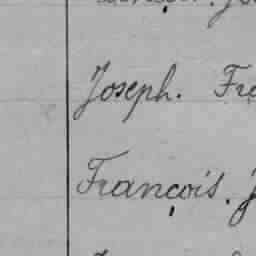 Joseph. Fra
François. J